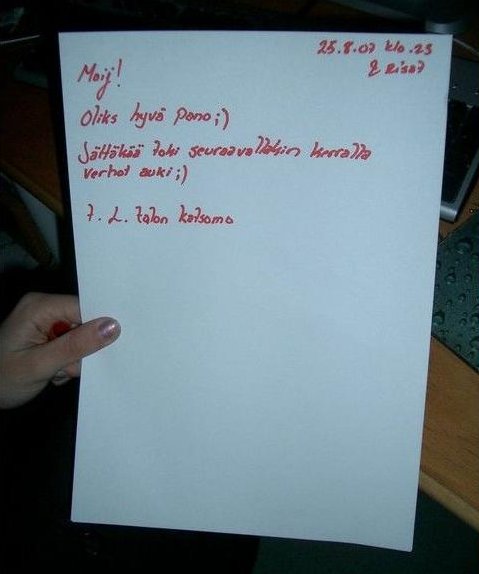 25.8.07 klo.23
Moij!
Oliks hyvä pano;)
Jättäkää toki seuraavallakin kerralla
verhot auki;)
T. L. talon katsomo